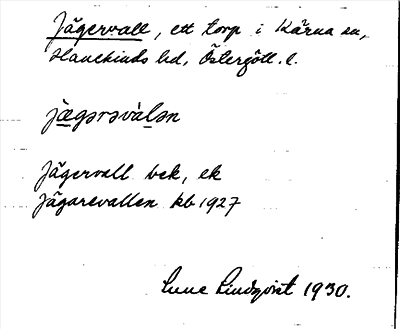 Jägervall, ett torp i Kärna sn,
Hanekinds hd, Östergötl. l.
jægərəvàlən
Jägervall bek, ek
Jägarevallen kb 1927
Sune Lindqvist 1930.